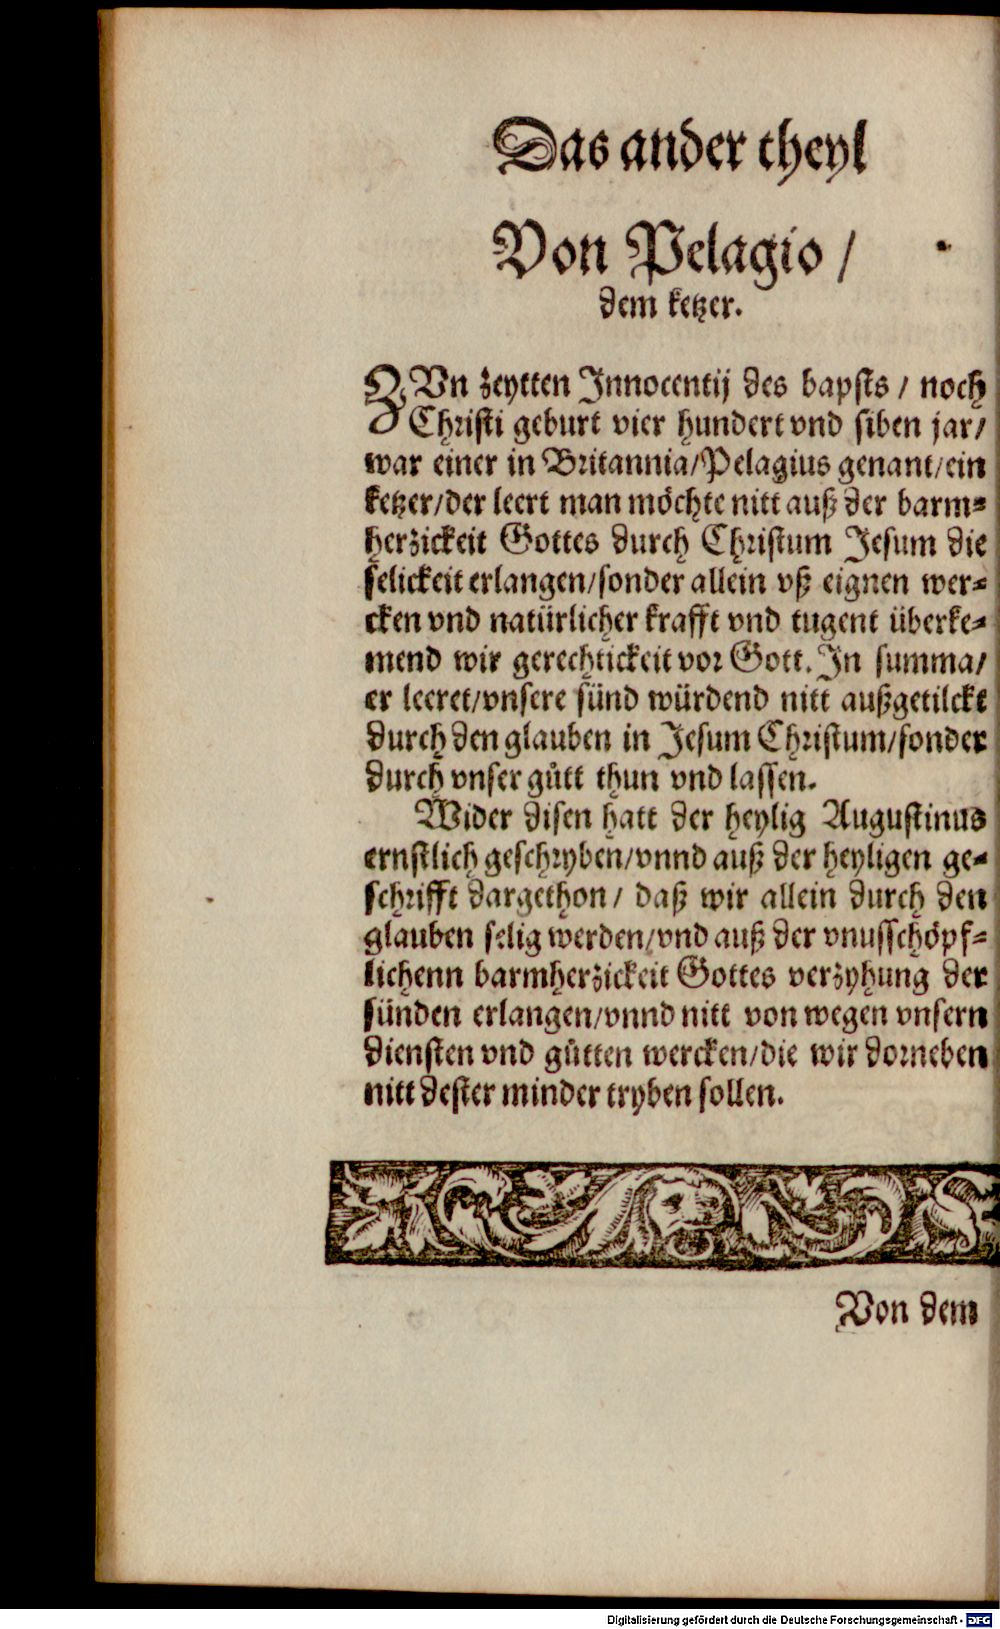 Das ander theyl
Von Pelagio /
dem ketzer.
ZVn zeytten Innocentij des bapsts / noch
Christi geburt vier hundert vnd siben jar/
war einer in Britannia/Pelagius genant/ein
ketzer/der leert man möchte nitt auß der barm-
herzickeit Gottes durch Christum Jesum die
selickeit erlangen/sonder allein vß eignen wer-
cken vnd natürlicher krafft vnd tugent überke-
mend wir gerechtickeit vor Gott. In summa/
er leeret/vnsere sünd würdend nitt außgetilckt
durch den glauben in Jesum Christum/sonder
durch vnser gůtt thun vnd lassen.
Wider disen hatt der heylig Augustinus
ernstlich geschryben/vnnd auß der heyligen ge-
schrifft dargethon/ daß wir allein durch den
glauben selig werden/vnd auß der vnusschöpf-
lichenn barmherzickeit Gottes verzyhung der
sünden erlangen/vnnd nitt von wegen vnsern
diensten vnd gůtten wercken/die wir dorneben
nitt dester minder tryben sollen.
Von dem
Digitalisierung gefördert durch die Deutsche Forschungsgemeinschaft - DFG